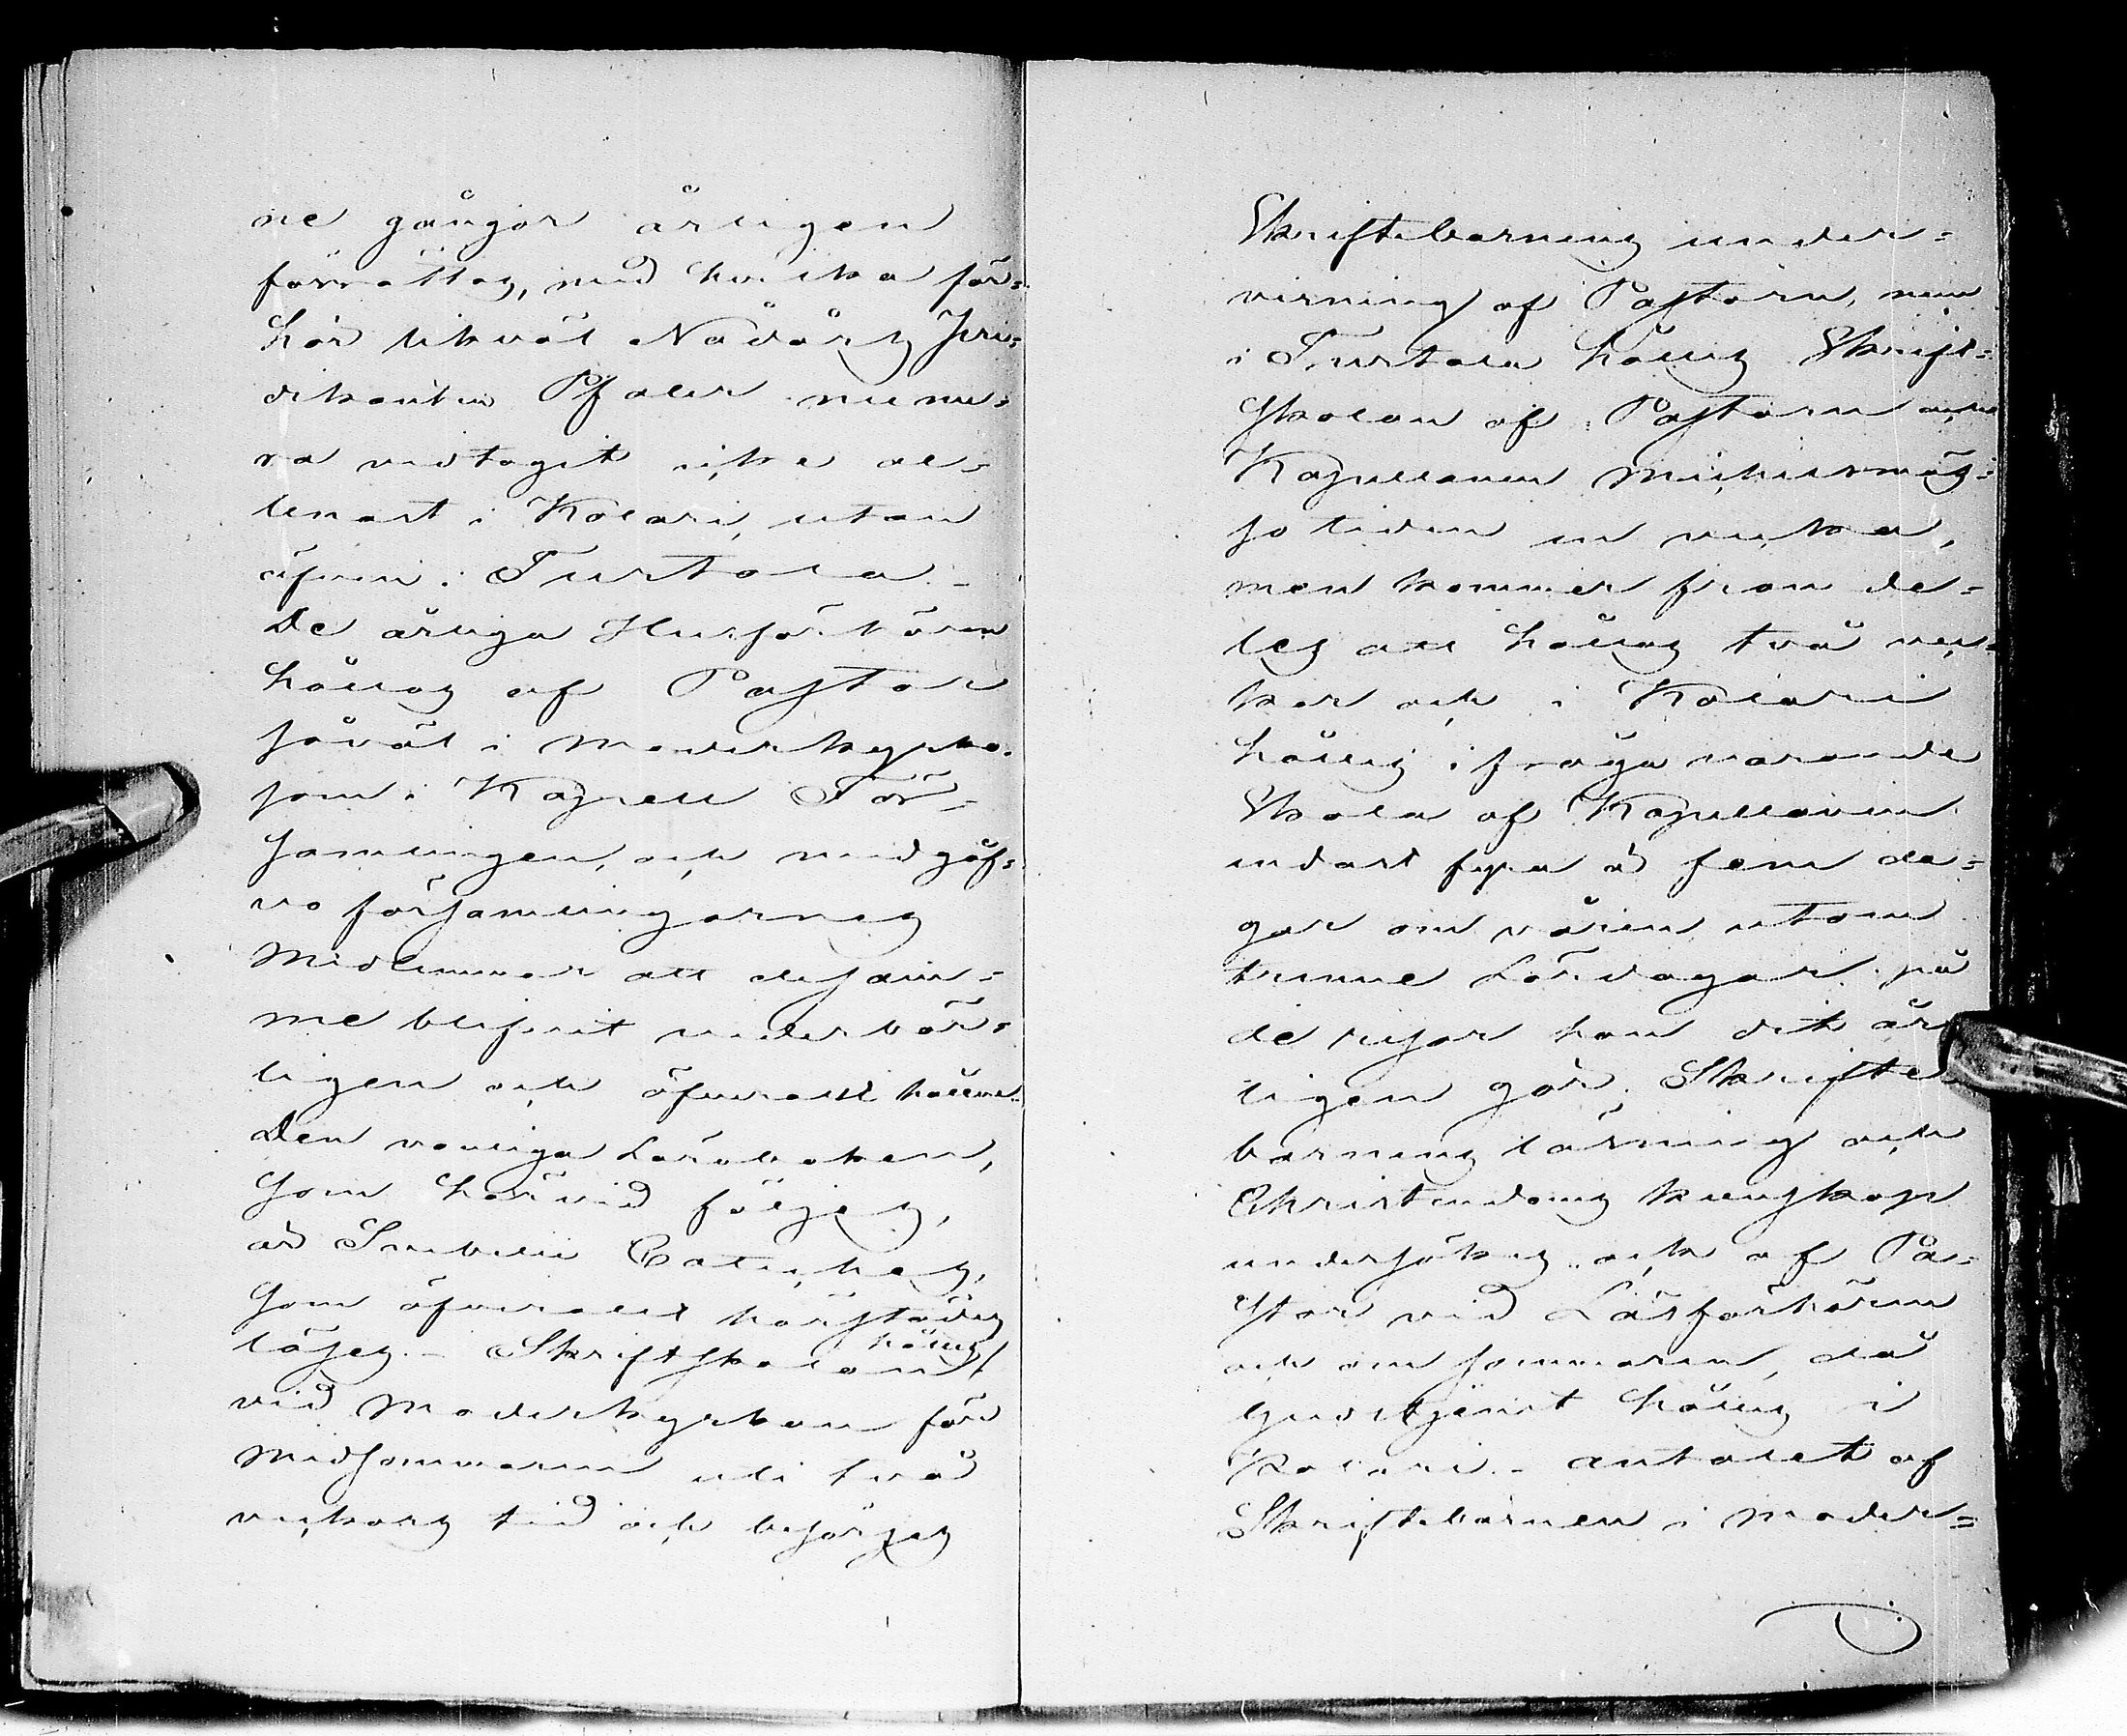 ne gånger årligen
förrättas, med hvilka för=
hör likväl Nådårs Pre=
dikanten Pfaler nume=
ra vidtagit icke al=
lenast i Kolari, utan
äfven i Turtola. -
De årliga Husförhören
hållas af Pastor
såväl i Moderkyrko-
som i Kapell För=
samlingen, och medgåf=
vo församlingarnes
Medlemmar att desam=
me blifvit vederbör=
ligen och öfverallt hållne.
Den vanliga Läroboken,
som härvid följes,
är Svebelii Cateches,
som öfverallt härstädes
läses. - Skriftskolan hålles
vid Moderkyrkan för
Midsommaren uti två
veckors tid och besörjes
Skriftebarnens under=
visning af Pastorn, men
i Turtola hålles Skrift=
skolan af Pastorn
Kapellanen Michelsmäs=
so tiden en vecka,
men kommer fram de=
les att hållas två vec=
kor och i Kolari
hålles ifrågavarande
Skola af Kapellanen
endast fyra à fem da=
gar om våren utom
trenne Lördagar på
de resor han dit år
ligen gör. Skrifte
barnens läsning och
Christendoms kunskap
undersökes ock af Pa=
stor vid Läsförhören
och om sommaren, då
Gudstjenst hålles i
Kolari. - Antalet af
Skriftebarnen i Moder=